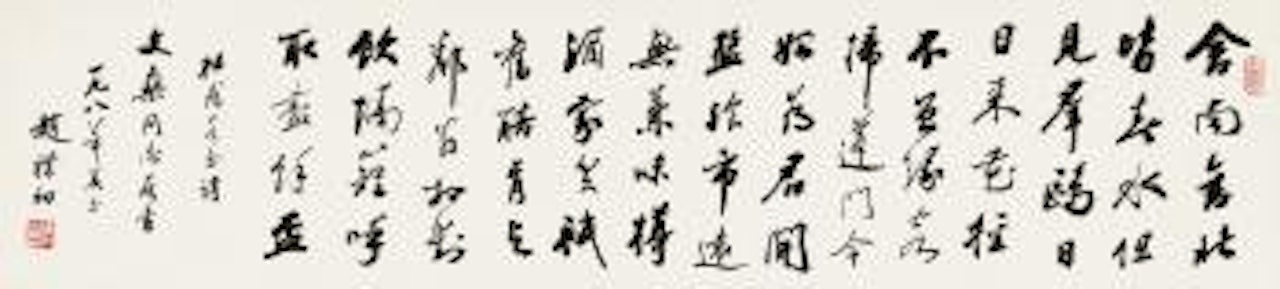 舍南舍北
皆春水但
見羣鷗日
日來花徑
不曾緣客
掃蓬門今
始為君開
盤飧市遠
無兼味樽
酒家貧祗
舊醅肯與
鄰翁相對
飲隔籬呼
取盡餘盃
杜甫客至詩
同志屬書
一九八年
趙樸初